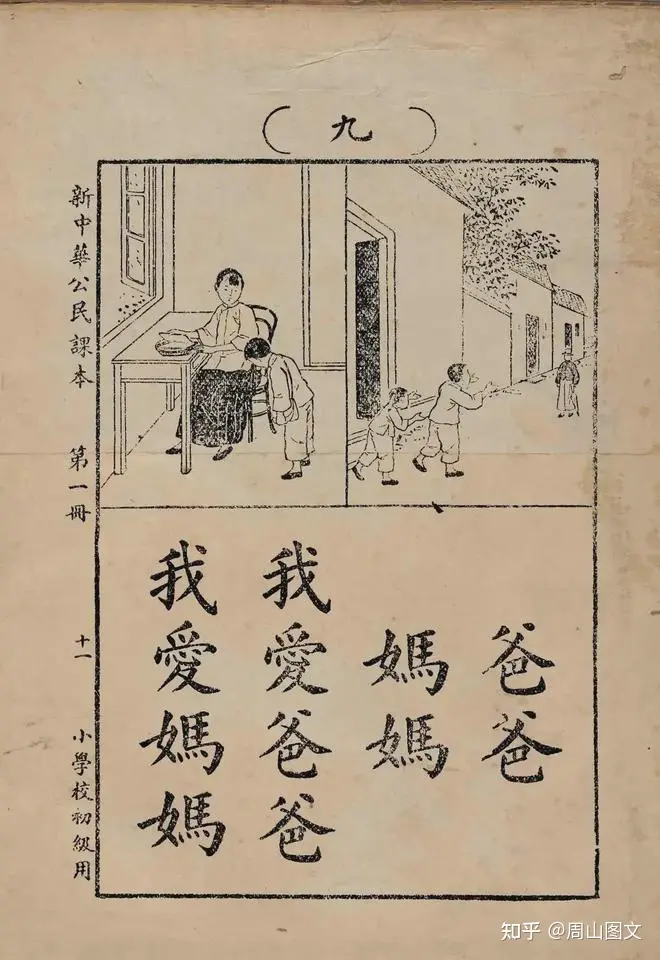 （九）
爸爸
媽媽
我愛爸爸
我愛媽媽
新中華公民課本 第一冊 十一 小學校初級用
知乎 @周山图文